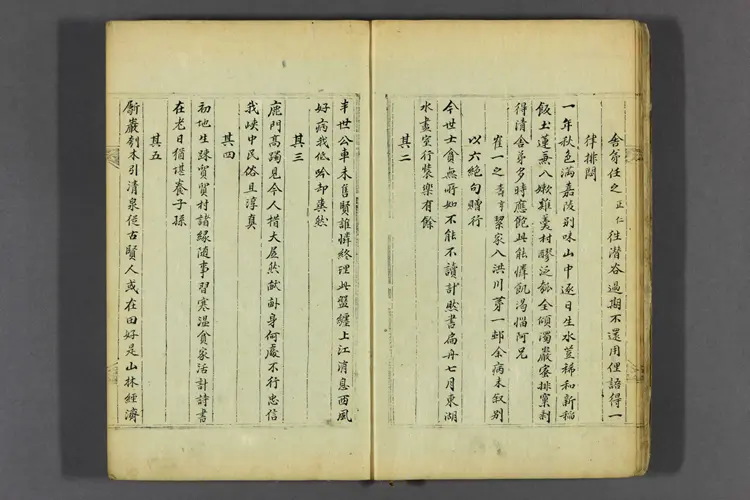 舍弟任之正仁往潜谷過期不還用俚語得一
律排悶
一年秋色滿嘉陵別味山中逐日生水荳稀和新稲
飯土蓮兼入嫰雞羹村醪泛 全傾濁巖蜜排窠剩
得清舍弟多時應飽此能憐飢渴惱阿兄
崔一之 挈家入洪川芽一邨余病未叙別
以六絕句贈行
今世士貧無所如不能不讀計然書扁舟七月東湖
水盡室行裝樂有餘
其二
半世公車未售賢誰憐終理此盤纏上江消息西風
好病我低吟却 然
其三
鹿門高躅見今人措大居然 畝身何處不行忠信
我峽中民俗且淳真
其四
初地生踈實質村諸緣隨事習寒温貧家活計詩書
在老日猶堪養子孫
其五
斸巖刳木引清泉從古賢人或在田好是山林經濟